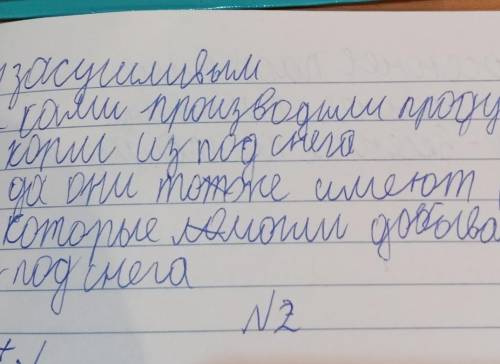 засушливым
ками производили проду
корм из под снега
да они тоже имеют
которые могли добыва
-под снега
№2